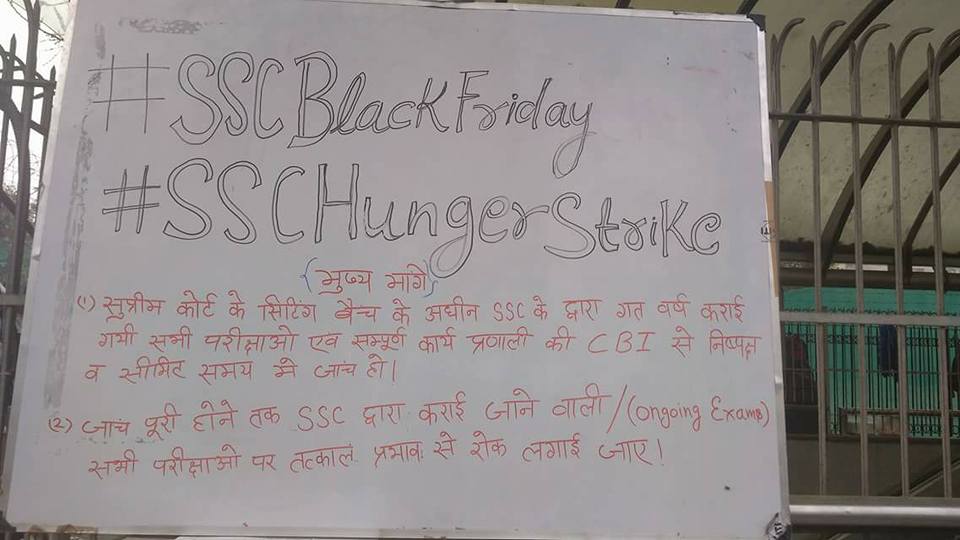 #SSCBlackFriday
#SSCHungerStrike
{मुख्य मांगे}
(1) सुप्रीम कोर्ट के सिटिंग बैच के अधीन SSC के द्वारा गत वर्ष कराई
गयी सभी परीक्षाओ एवं सम्पूर्ण कार्य प्रणाली की CBI से निष्पक्ष
व सीमित समय मे जांच हो।
(2) जाच पूरी होने तक SSC द्वारा कराई जाने वाली/(ongoing Exams)
सभी परीक्षाओ पर तत्काल प्रभावः से रोक लगाई जाए!